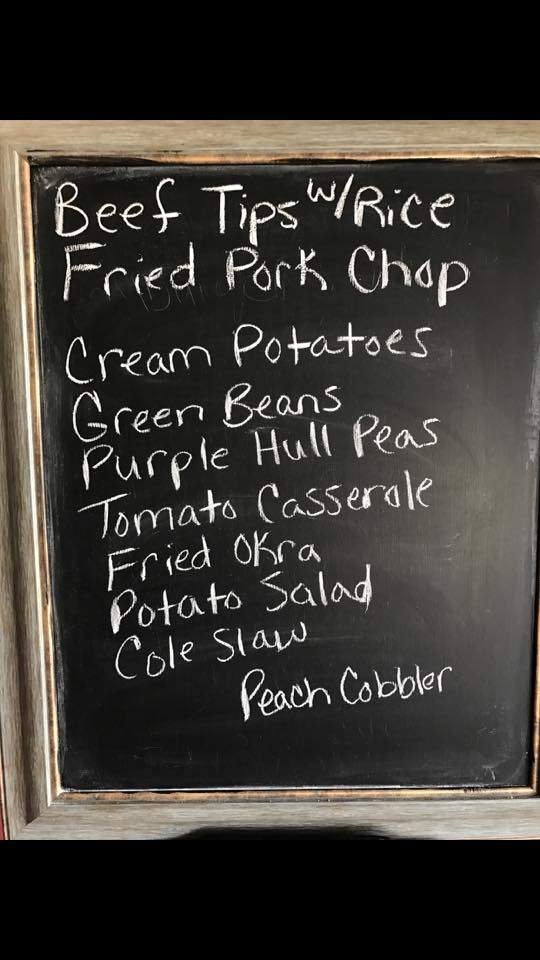 Beef Tips w/Rice
Fried Pork Chop
Cream Potatoes
Green Beans
Purple Hull Peas
Tomato Casserole
Fried Okra
Potato Salad
Cole Slaw
Peach Cobbler